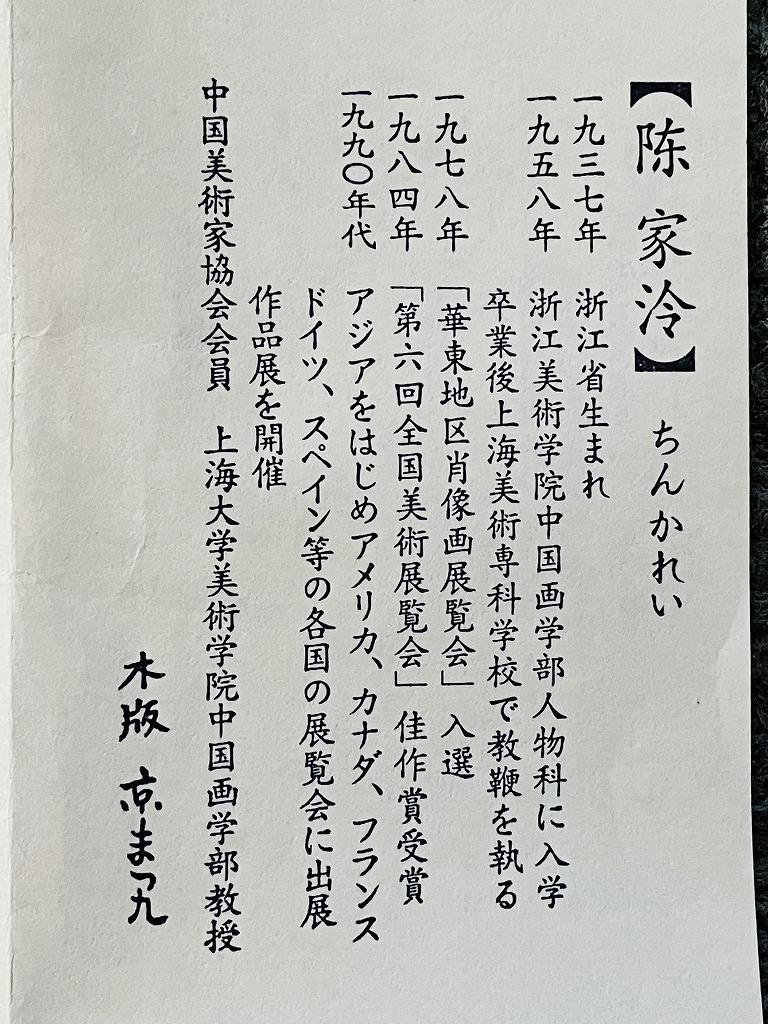 【陈家泠】 ちんかれい
一九三七年 浙江省生まれ
一九五八年 浙江美術学院中国画学部人物科に入学
卒業後上海美術専科学校で教鞭を執る
一九七八年 「華東地区肖像画展覧会」入選
一九八四年 「第六回全国美術展覧会」佳作賞受賞
一九九〇年代 アジアをはじめアメリカ、カナダ、フランス
ドイツ、スペイン等の各国の展覧会に出展
作品展を開催
中国美術家協会会員 上海大学美術学院中国画学部教授
木版 京まつ九